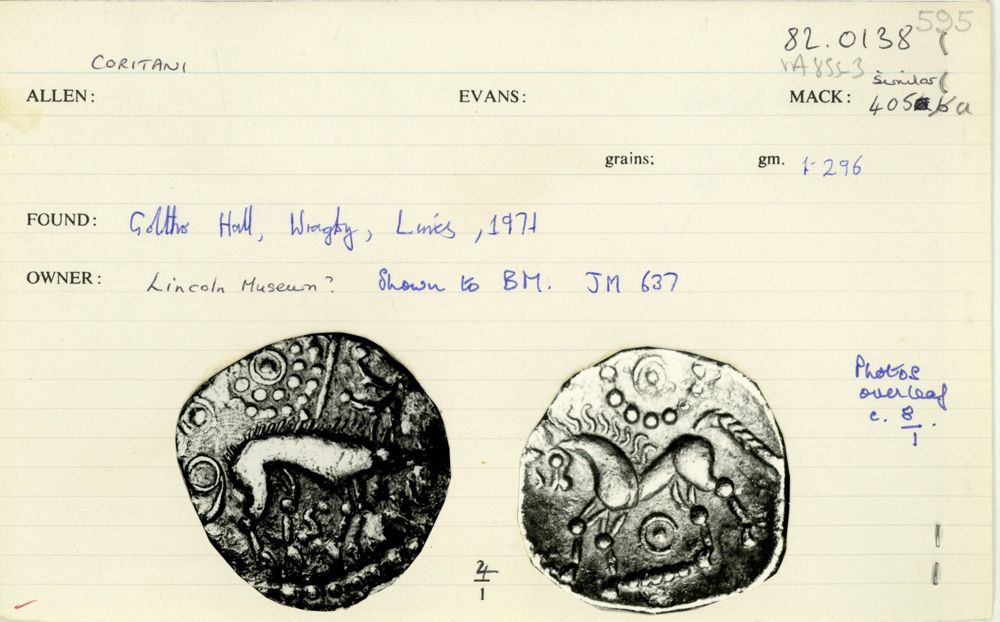 595
82.0138
CORITANI
ALLEN: EVANS: MACK: similar
405 a
grains: gm. 1·296
FOUND: Goltho Hall, Wragby, Lincs, 1971
OWNER: Lincoln Museum? Shown to BM. JM 637
Photos
overleaf
c. 8
1
4
1